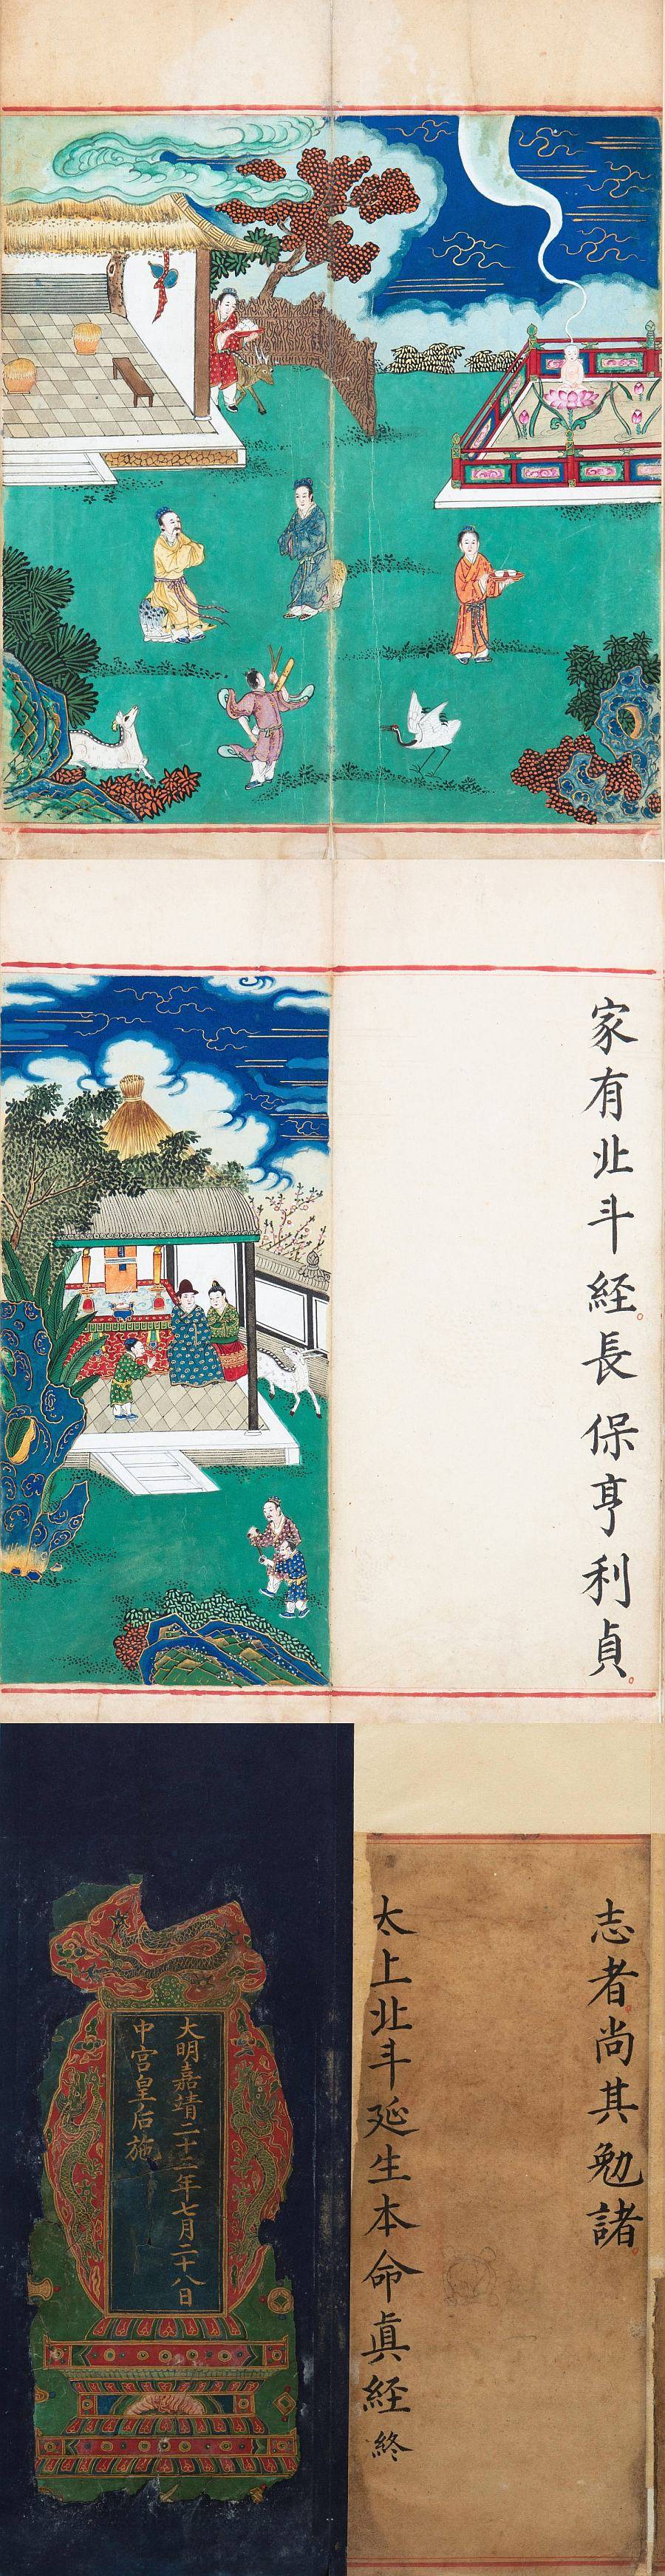 家有北斗経長保亨利貞
志者尚其勉諸
太上北斗延生本命眞経終
大明嘉靖二十三年七月二十八日
中宮皇后施